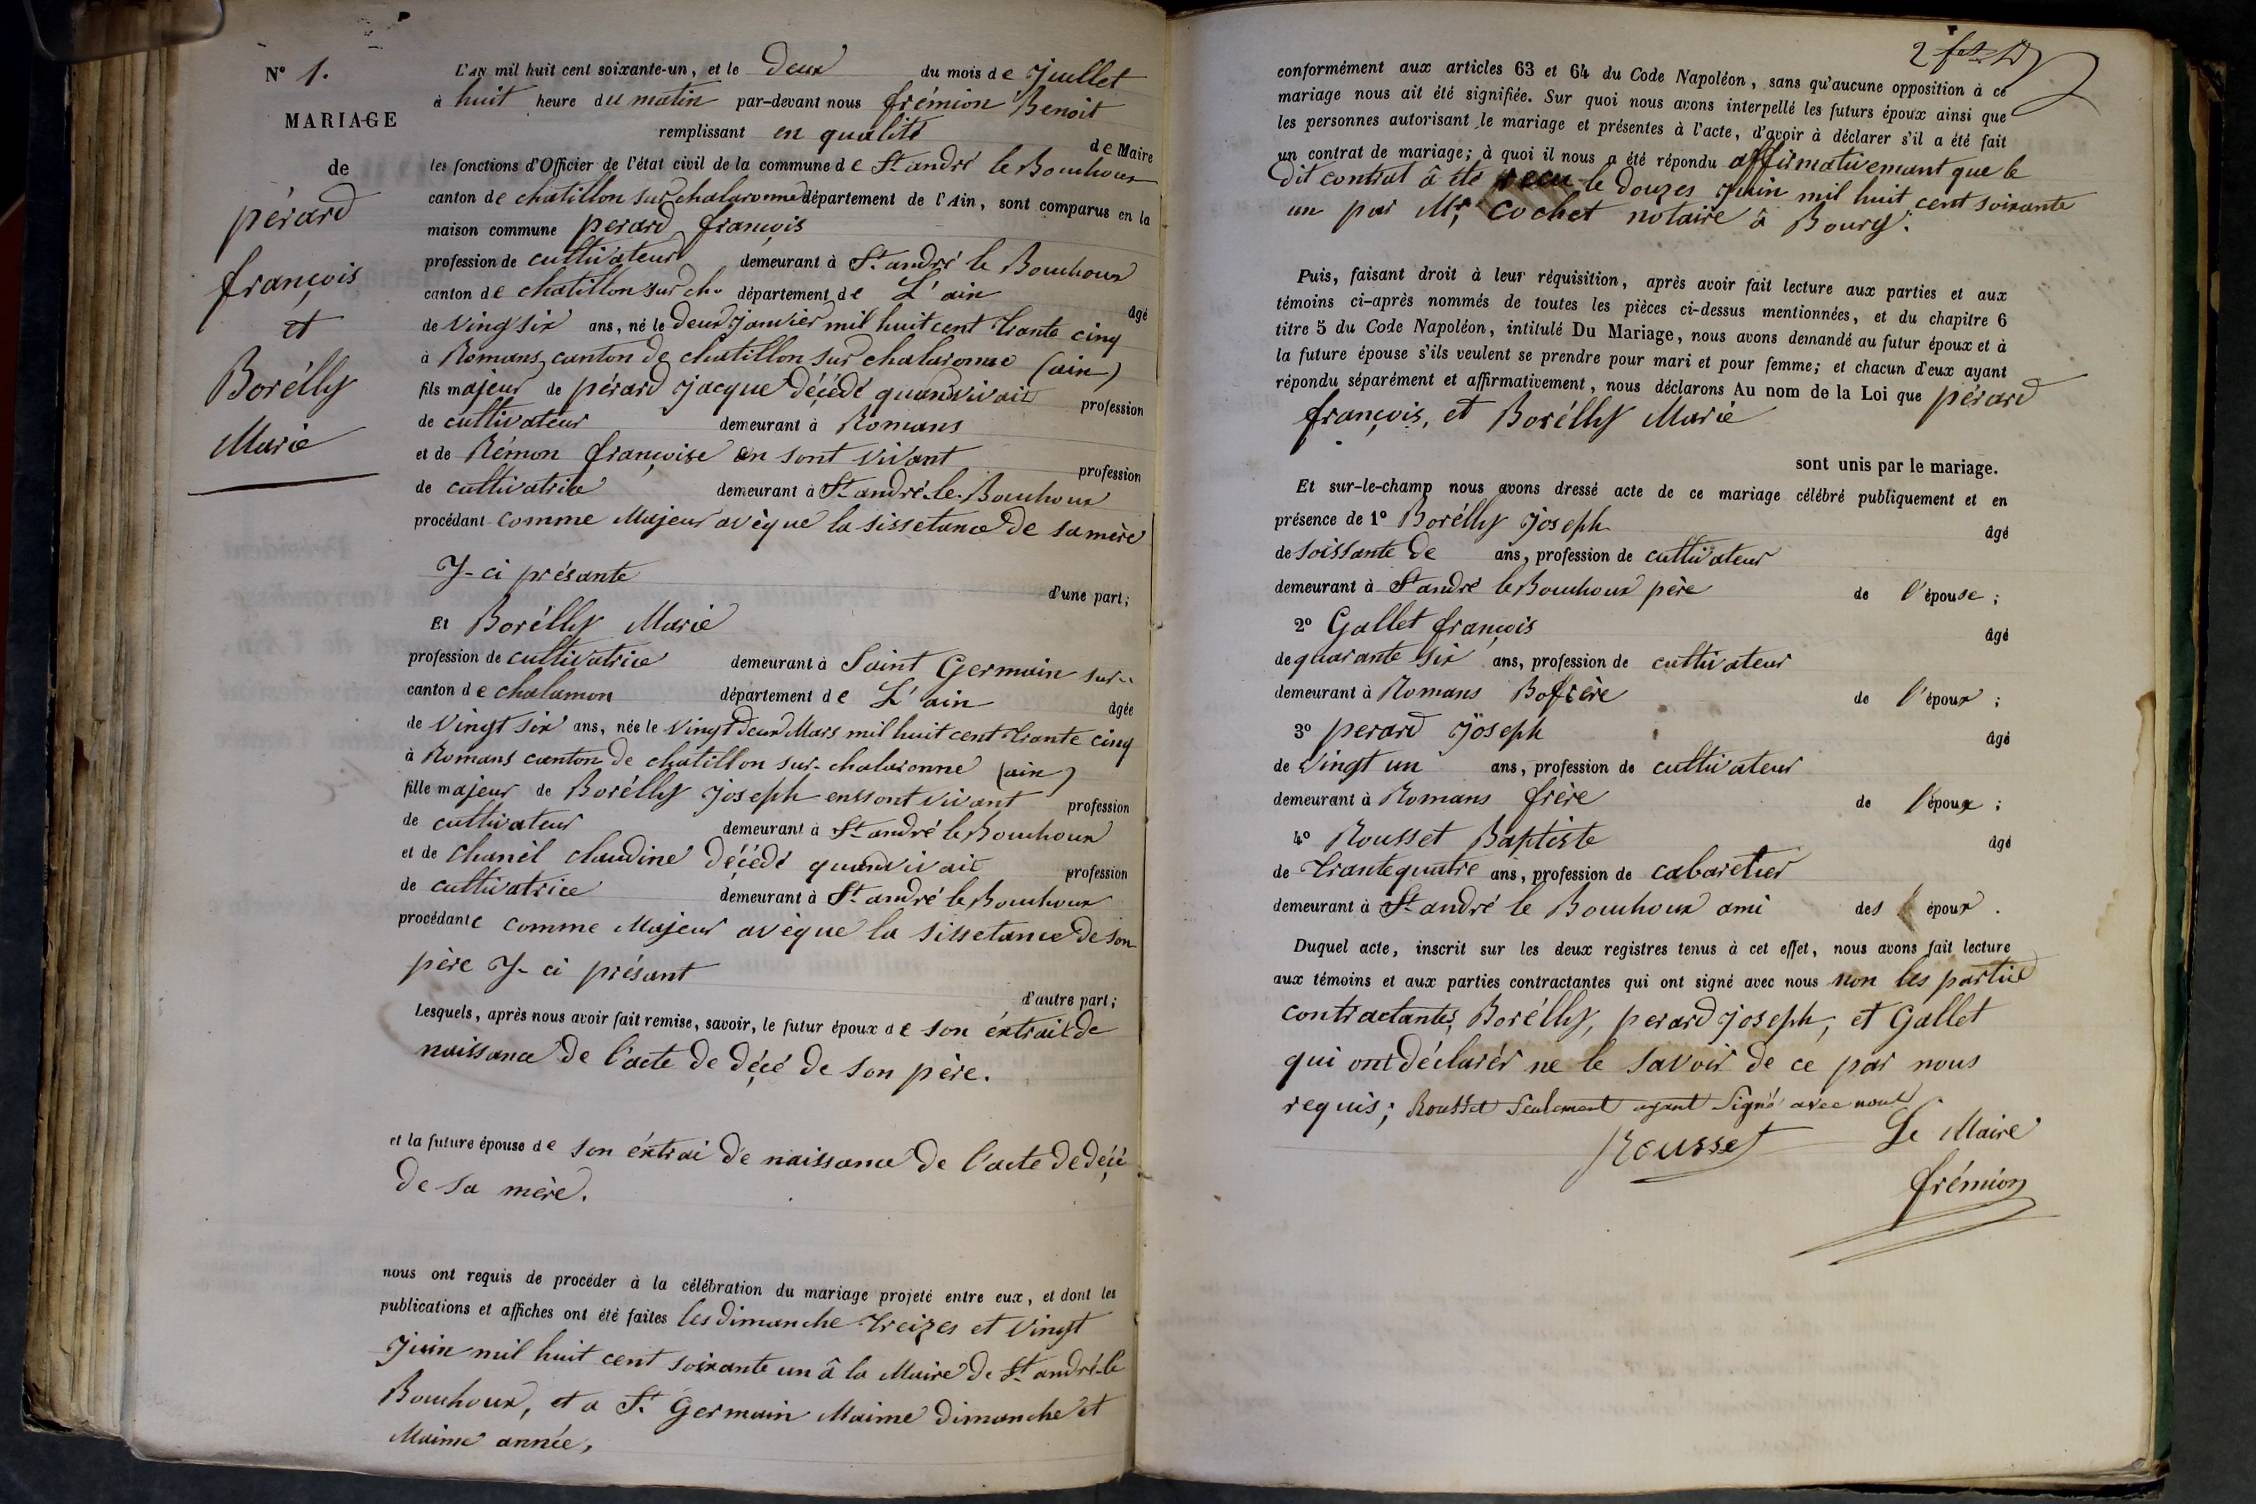 N° 1.
MARIAGE
de
pérard
françois
et
Borélly
Marie
L'AN mil huit cent soixante-un, et le deux du mois de Juillet
à huit heure du matin par-devant nous frémion Benoit
remplissant en qualité de Maire
les fonctions d'Officier de l'état civil de la commune de St andré le Bouchoux
canton de chatillon sur chalaronne département de l'Ain, sont comparus en la
maison commune perard françois
profession de cultivateur demeurant à St andré le Bouchoux
canton de chatillon sur cha département de L'ain âgé
de vingsix ans, né le deux janvier mil huit cent trante cinq
à Romans canton de chatillon sur chalaronne (ain)
fils majeur de pérard jacque déçédé quand vivait profession
de cultivateur demeurant à Romans
et de Rémon françoise en sont vivant profession
de cultivatrice demeurant à St andré-le-Bouchoux
procédant comme Majeur avèque la sissetance de sa mère
Y-ci présante
d'une part;
Et Borélly Marie
profession de cultivatrice demeurant à Saint Germain sur..
canton de chalamon département de L'ain âgée
de vingt six ans, née le vingt deux Mars mil huit cent trante cinq
à Romans canton de chatillon sur-chalaronne (ain)
fille majeur de Borélly joseph enssont vivant profession
de cultivateur demeurant à St andré le Bouchoux
et de chanél claudine déçédé quand vivait profession
de cultivatrice demeurant à St andré le Bouchoux
procédante comme Majeur avèque la sissetance de son
père Y-ci présant
d'autre part;
Lesquels, après nous avoir fait remise, savoir, le futur époux de son éxtrait de
naissance de l'acte de déçé de son père.
et la future épouse de son éxtrai de naissance de l'acte de déçé
de sa mère.
nous ont requis de procéder à la célébration du mariage projeté entre eux, et dont les
publications et affiches ont été faites les dimanche treizes et vingt
juin mil huit cent soixante un â la Maire de St andré-le
Bouchoux, et a St Germain Maime dimanche et
Maime année,
conformément aux articles 63 et 64 du Code Napoléon, sans qu'aucune opposition à ce
mariage nous ait été signifiée. Sur quoi nous avons interpellé les futurs époux ainsi que
les personnes autorisant le mariage et présentes à l'acte, d'avoir à déclarer s'il a été fait
un contrat de mariage; à quoi il nous a été répondu affirmativemant que le
dit contrat â été recu le douzes juin mil huit cent soixante
un par Mr Cochet notaire â Bourg.
Puis, faisant droit à leur réquisition, après avoir fait lecture aux parties et aux
témoins ci-après nommés de toutes les pièces ci-dessus mentionnées, et du chapitre 6
titre 5 du Code Napoléon, intitulé Du Mariage, nous avons demandé au futur époux et à
la future épouse s'ils veulent se prendre pour mari et pour femme; et chacun d'eux ayant
répondu séparément et affirmativement, nous déclarons Au nom de la Loi que pérard
françois, et Borélly Marie
sont unis par le mariage.
Et sur-le-champ nous avons dressé acte de ce mariage célébré publiquement et en
présence de 1° Borélly joseph âgé
de soissante de ans, profession de cultivateur
demeurant à St andré le Bouchoux père de l'épouse;
2° Gallet françois âgé
de quarante six ans, profession de cultivateur
demeurant à Romans Bofrère de l'époux;
3° perard joseph âgé
de vingt un ans, profession de cultivateur
demeurant à Romans frère de l'époux;
4° Rousset Baptiste âgé
de trantequatre ans, profession de cabaretier
demeurant à St andré le Bouchoux ami des époux.
Duquel acte, inscrit sur les deux registres tenus à cet effet, nous avons fait lecture
aux témoins et aux parties contractantes qui ont signé avec nous non les partie
contractantes, Borélly, perard joseph, et Gallet
qui ont déclarér ne le savoir de ce par nous
requis; Rousset seulement ayant signé avec nous
Rousset Le Maire
frémion